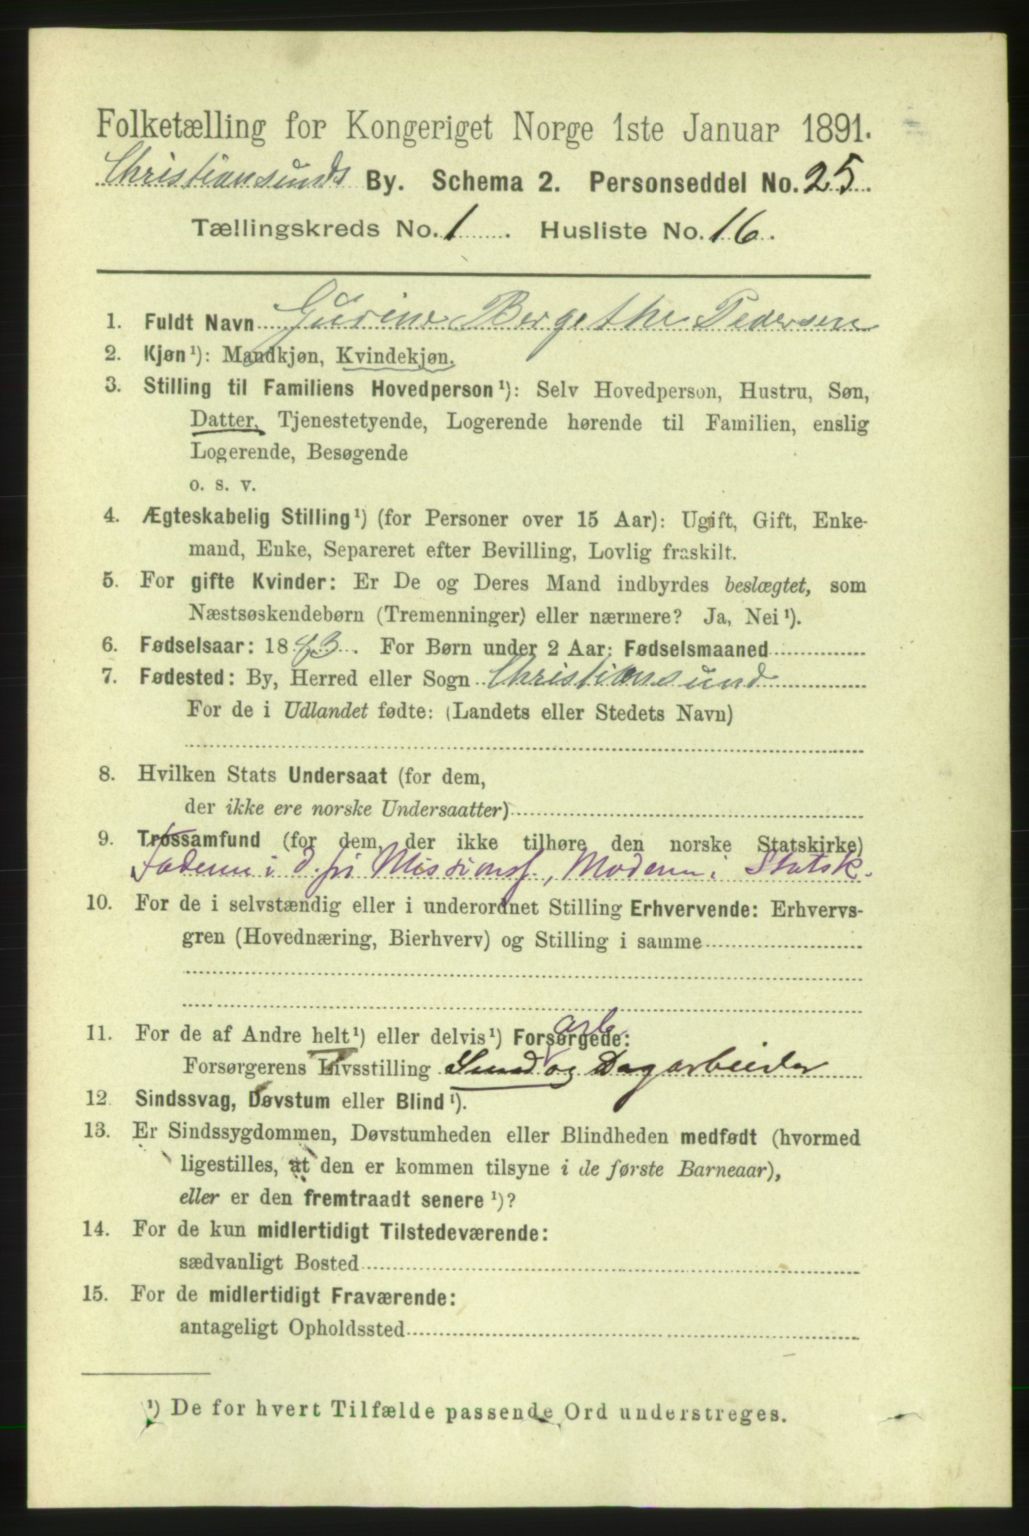 Folketælling for Kongeriget Norge 1ste Januar 1891.
Christiansunds By. Schema 2. Personseddel No. 25.
Tællingskreds No. 1. Husliste No. 16.
1. Fuldt Navn Gurine Bergethe Pedersen
2. Kjøn ¹): Mandkjøn, Kvindekjøn.
3. Stilling til Familiens Hovedperson ¹): Selv Hovedperson, Hustru, Søn,
Datter, Tjenestetyende, Logerende hørende til Familien, enslig
Logerende, Besøgende
o. s. v.
4. Ægteskabelig Stilling ¹) (for Personer over 15 Aar): Ugift, Gift, Enke-
mand, Enke, Separeret efter Bevilling, Lovlig fraskilt.
5. For gifte Kvinder: Er De og Deres Mand indbyrdes beslægtet, som
Næstsøskendebørn (Tremenninger) eller nærmere? Ja, Nei ¹).
6. Fødselsaar: 18 . For Børn under 2 Aar: Fødselsmaaned
7. Fødested: By, Herred eller Sogn Christiansund
For de i Udlandet fødte: (Landets eller Stedets Navn)
8. Hvilken Stats Undersaat (for dem,
der ikke ere norske Undersaatter)
9. Trossamfund (for dem, der ikke tilhøre den norske Statskirke)
Faderen i d. fri Missionsf., Moderen i Statsk.
10. For de i selvstændig eller i underordnet Stilling Erhvervende: Erhvervs-
gren (Hovednæring, Bierhverv) og Stilling i samme
11. For de af Andre helt ¹) eller delvis ¹) Forsørgede:
arb.
Forsørgerens Livsstilling og Dagarbeider
12 Sindssvag, Døvstum eller Blind ¹).
13. Er Sindssygdommen, Døvstumheden eller Blindheden medfødt (hvormed
ligestilles, at den er kommen tilsyne i de første Barneaar),
eller er den fremtraadt senere ¹)?
14. For de kun midlertidigt Tilstedeværende:
sædvanligt Bosted
15. For de midlertidigt Fraværende:
antageligt Opholdssted
¹) De for hvert Tilfælde passende Ord understreges.